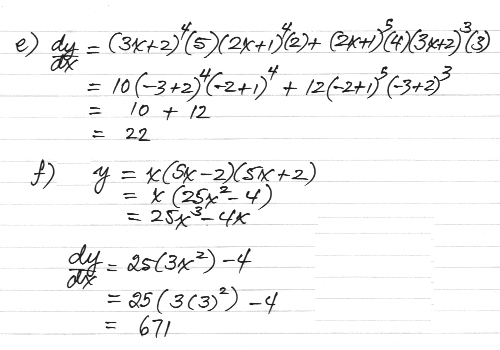 e) dy/dx = (3x+2)⁴(5)(2x+1)⁴(2) + (2x+1)⁵(4)(3x+2)³(3)
= 10(-3+2)⁴(-2+1)⁴ + 12(-2+1)⁵(-3+2)³
= 10 + 12
= 22
f) y = x(5x-2)(5x+2)
= x(25x²-4)
= 25x³-4x
dy/dx = 25(3x²)-4
= 25(3(3)²)-4
= 671